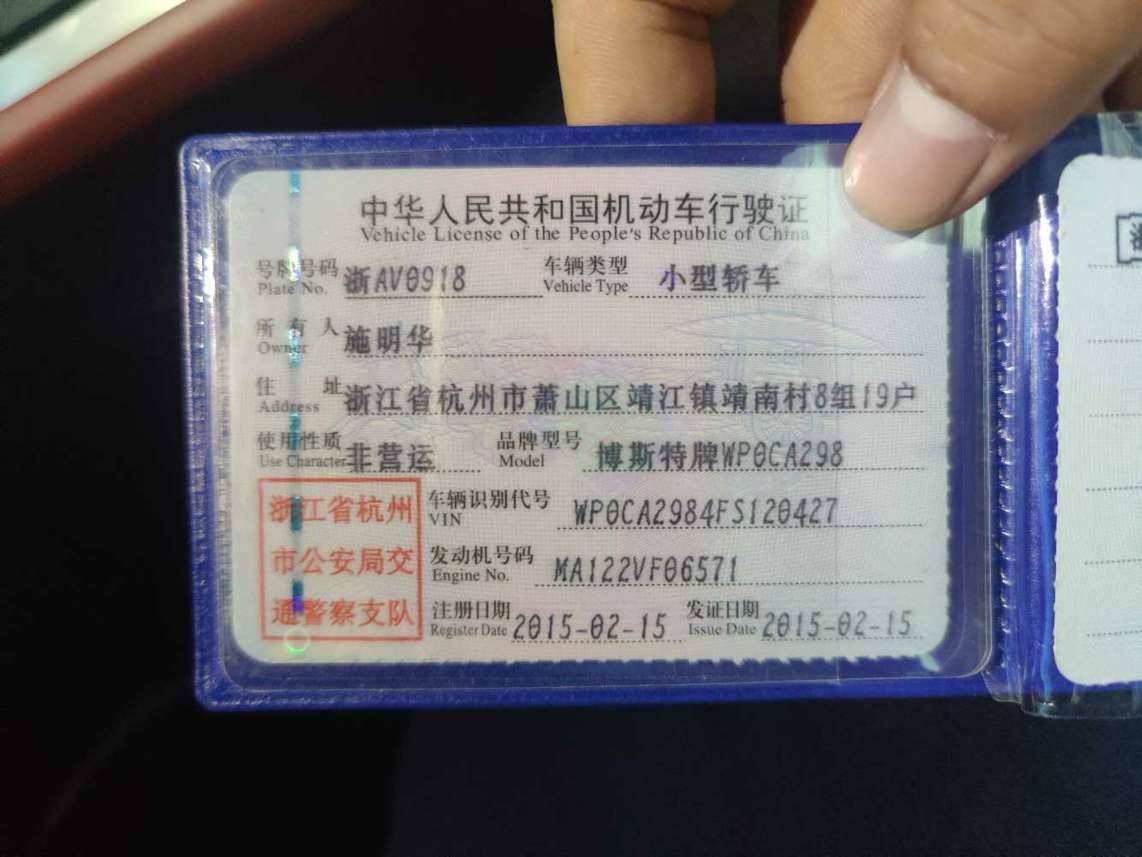 中华人民共和国机动车行驶证
Vehicle License of the People's Republic of China
号牌号码 浙AV0918 车辆类型 小型轿车
Plate No. Vehicle Type
所有人 施明华
Owner
住址 浙江省杭州市萧山区靖江镇靖南村8组19户
Address
使用性质 非营运 品牌型号 博斯特牌WP0CA298
Use Character Model
浙江省杭州
市公安局交
通警察支队
车辆识别代号 WP0CA2984FS120427
VIN
发动机号码 MA122VF06571
Engine No.
注册日期 2015-02-15 发证日期 2015-02-15
Register Date Issue Date